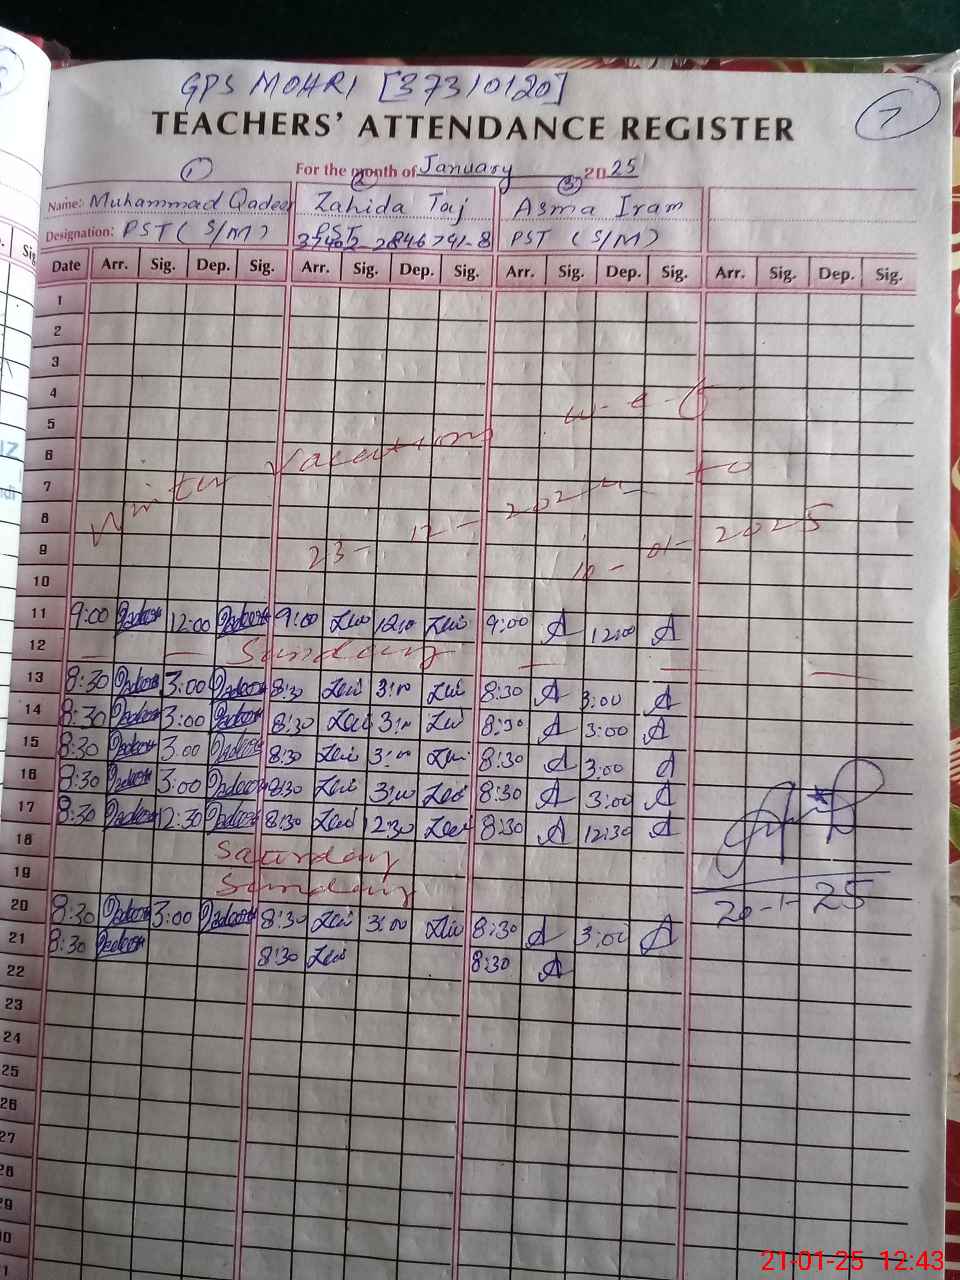 GPS MOHRI [37310120]
7
TEACHERS' ATTENDANCE REGISTER
For the month of January 2025
1 2 3
Name: Muhammad Qadeer Zahida Taj Asma Iram
Designation: PST (S/M) PST 37402-2846791-8 PST (S/M)
Date Arr. Sig. Dep. Sig. Arr. Sig. Dep. Sig. Arr. Sig. Dep. Sig. Arr. Sig. Dep. Sig.
1
2
3
4
5
6
7
8
9
10
Winter Vacations w-e-f
23-12-2024 to
10-01-2025
11 9:00 Qadeer 12:00 Qadeer 9:00 12:00 9:00 A 12:00 A
12 Sunday
13 8:30 Qadeer 3:00 Qadeer 8:30 3:00 8:30 A 3:00 A
14 8:30 Qadeer 3:00 Qadeer 8:30 3:00 8:30 A 3:00 A
15 8:30 Qadeer 3:00 Qadeer 8:30 3:00 8:30 A 3:00 A
16 8:30 Qadeer 3:00 Qadeer 8:30 3:00 8:30 A 3:00 A
17 8:30 Qadeer 12:30 Qadeer 8:30 12:30 8:30 A 12:30 A
18 Saturday
19 Sunday
20 8:30 Qadeer 3:00 Qadeer 8:30 3:00 8:30 A 3:00 A
20-1-25
21 8:30 Qadeer 8:30 8:30 A
22
23
24
25
26
27
28
29
30
21-01-25 12:43